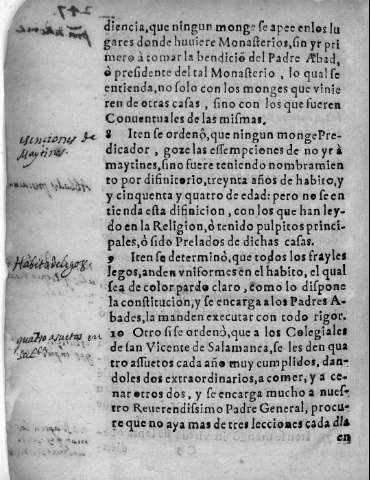 247
diencia, que ningun monge se apee enlos lu
gares donde huuiere Monasterios, sin yr pri
mero à tomar la bendiciõ del Padre Abad,
ò presidente del tal Monasterio, lo qual se
entienda, no solo con los monges que vinie
ren de otras casas, sino con los que fueren
Conuentuales de las mismas.
8 Iten se ordenò, que ningun monge Pre-
dicador, goze las essempciones de no yr à
maytines, sino fuere teniendo nombramien
to por difinitorio, treynta años de habito, y
y cinquenta y quatro de edad: pero no se en
tienda esta difinicion, con los que han ley-
do en la Religion, ò tenido pulpitos princi-
pales, ò sido Prelados de dichas casas.
9 Iten se determinò, que todos los frayles
legos, anden vniformes en el habito, el qual
sea de color pardo claro, como lo dispone
la constitucion, y se encarga a los Padres A-
bades, la manden executar con todo rigor.
10 Otro si se ordenò, que a los Colegiales
de san Vicente de Salamanca, se les den qua
tro assuetos cada año muy cumplidos, dan-
doles dos extraordinarios, a comer, y a ce-
nar otros dos, y se encarga mucho a nues-
tro Reuerendissimo Padre General, procu-
re que no aya mas de tres lecciones cada dia
en
esenciones de
Maytines.
Habito de legos.
quatro assuetos en